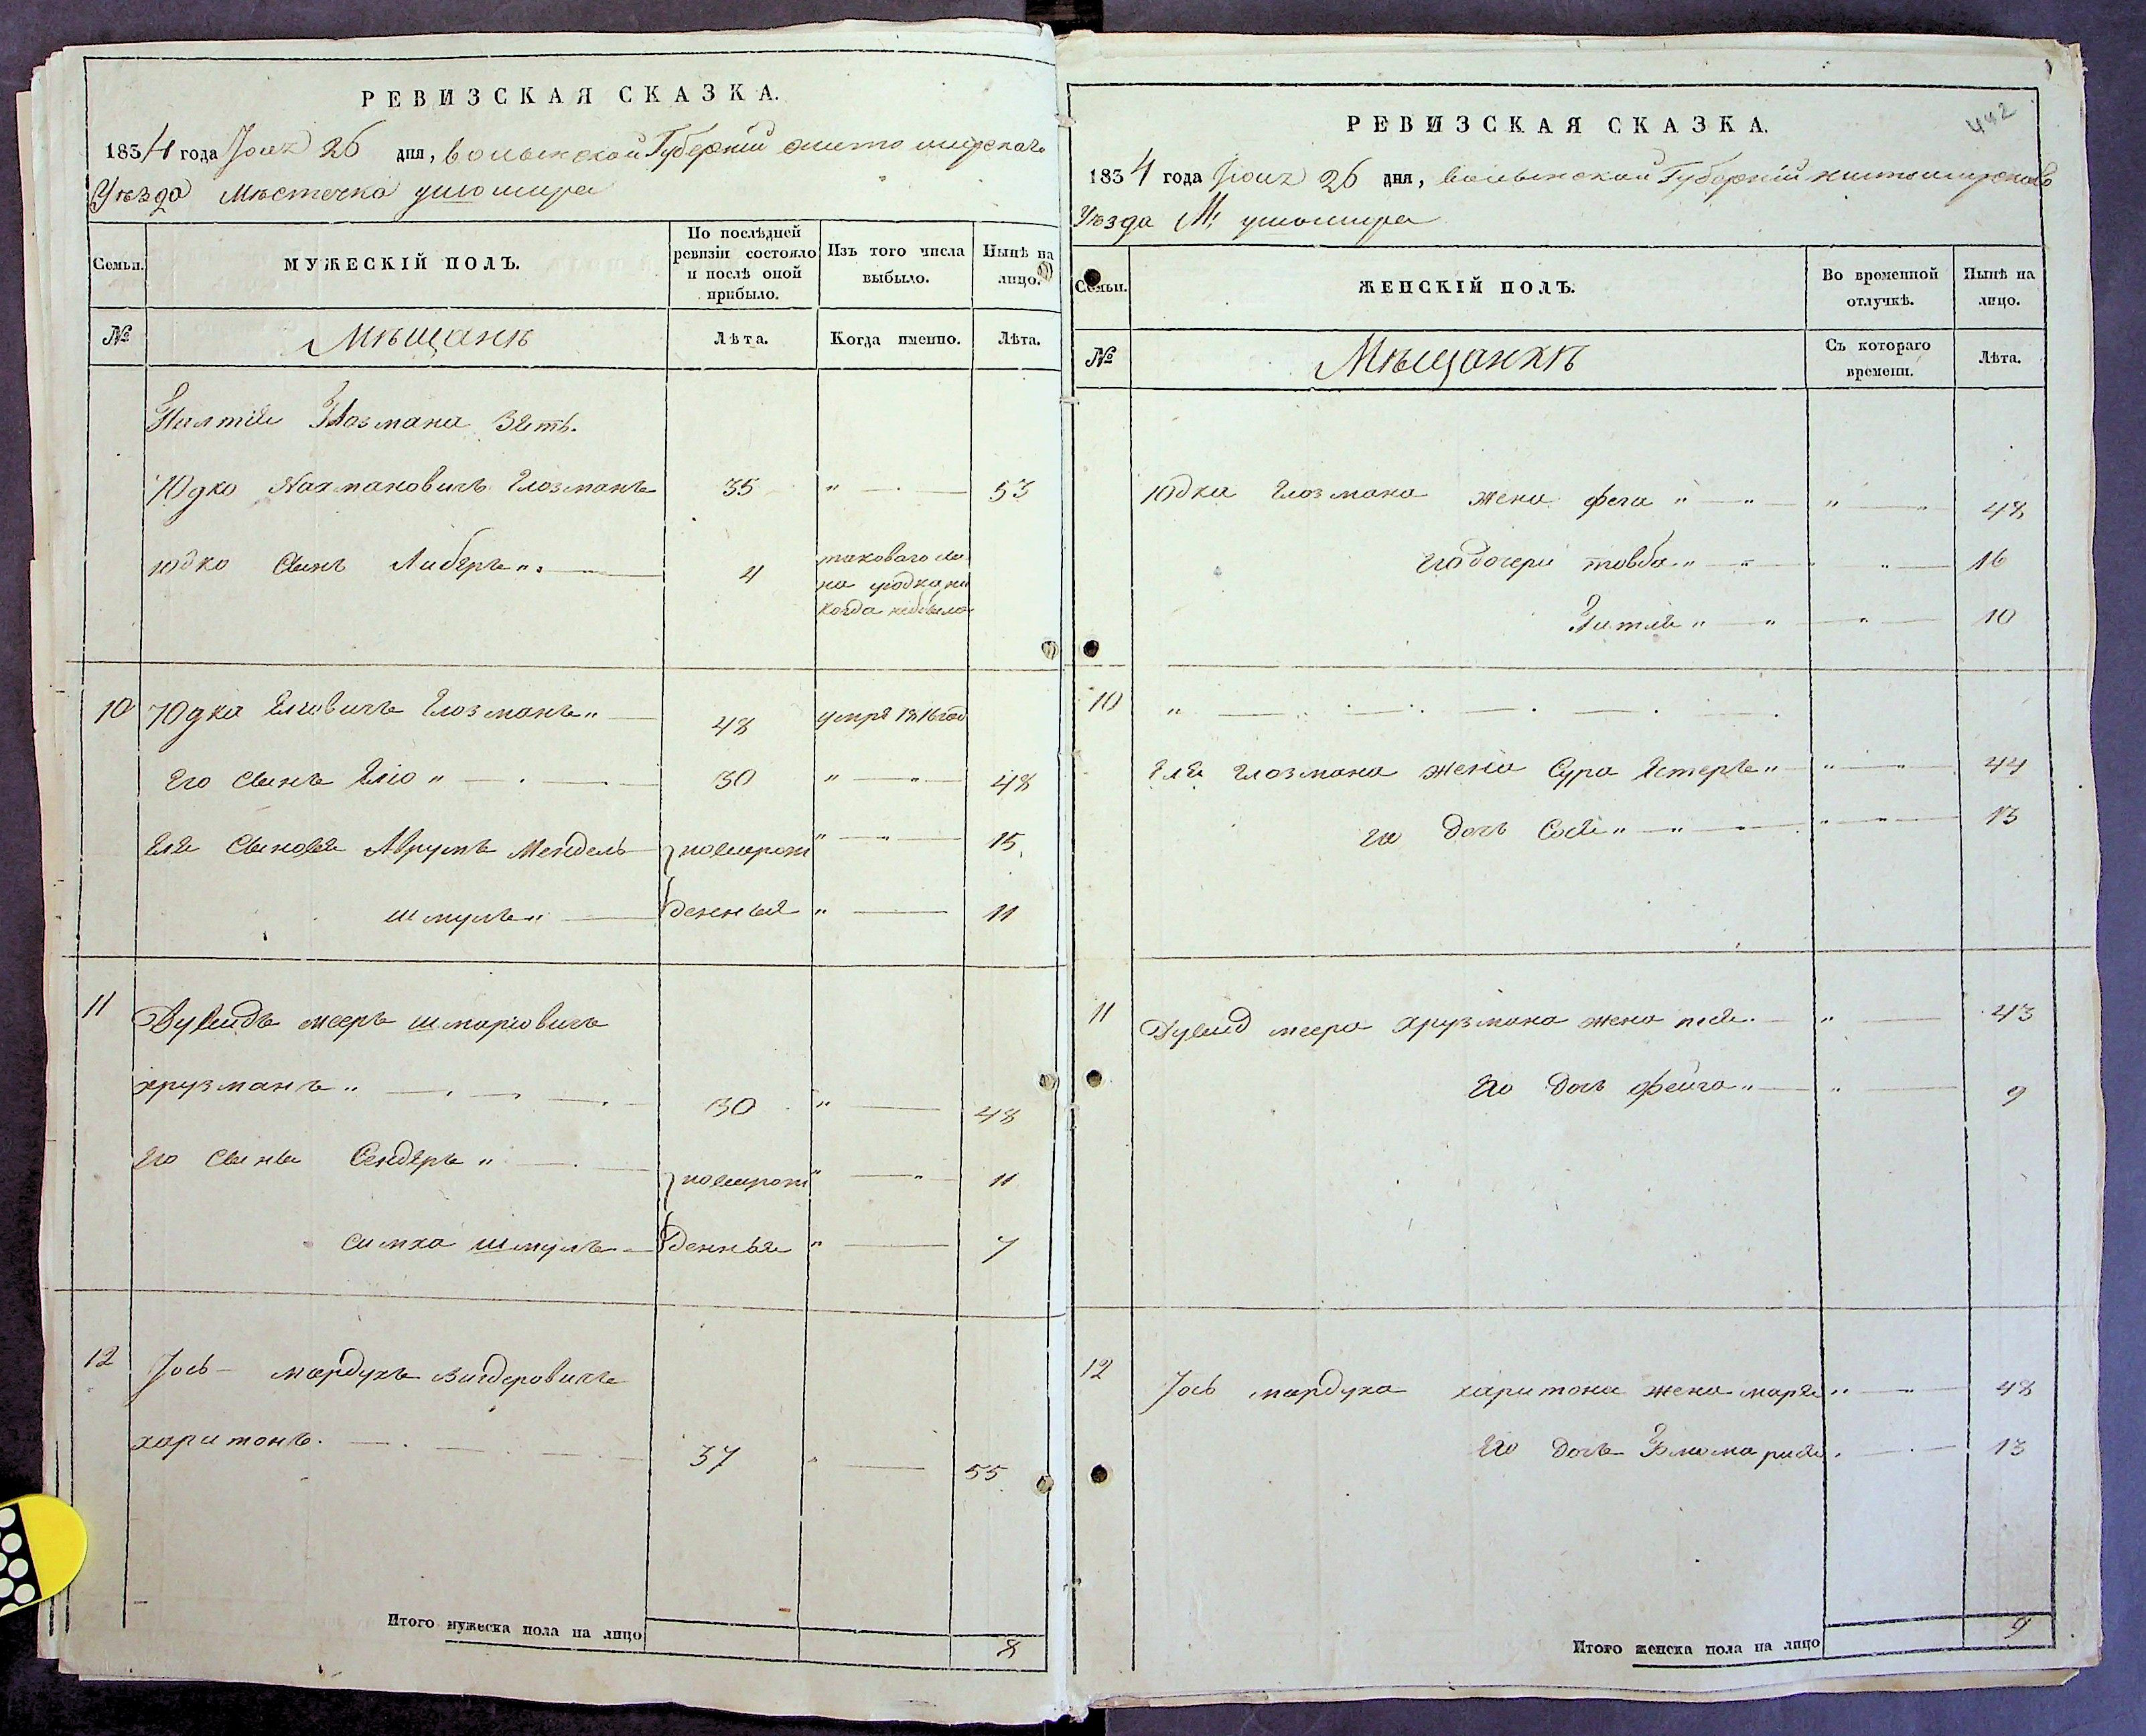 РЕВИЗСКАЯ СКАЗКА.
1834 года Июля 26 дня, волынской Губерніи житомирскаго
Уѣзда Мѣстечка ушомира
Семьи.
МУЖЕСКІЙ ПОЛЪ.
По послѣдней ревизіи состояло и послѣ оной прибыло.
Изъ того числа выбыло.
Нынѣ на лицо.
№
Мѣщанѣ
Лѣта.
Когда именно.
Лѣта.
Глозмана Зять.
Юдко Нахмановичъ Глозманъ 35 " — 53
юдко Сынъ Либеръ " — 4 таковаго
на когда небыло
10 Юдка Елiовичъ Глозманъ " — 48 умре 1816 год
Его Сынъ Елiо " — 30 " — " — 48
Еля Сыновья Аврумъ Мендель новорож " — " — 15
шмуль " — денныя " — 11
11 Дувидъ мееръ шмариовичъ
хрузманъ " — 30 " — 48
Его Сыны Сендеръ " — новорож " — " — 11
симха шмуль — денныя " — 7
12 Іось — мордухъ вигдеровичъ
харитонъ. — 37 " — 55
Итого мужеска пола на лицо 8
442
РЕВИЗСКАЯ СКАЗКА.
1834 года Июля 26 дня, волынской Губерніи житомирскаго
Уѣзда М. ушомира
Семьи.
ЖЕНСКІЙ ПОЛЪ.
Во временной отлучкѣ.
Нынѣ на лицо.
№
Мѣщанкѣ
Съ котораго времени.
Лѣта.
Юдка Глозмана жена фега " — " — " — " 48
его дочери товба " — " — " — 16
Гитля " — " — " — 10
10 " —
Еля Глозмана жена Сура Естеръ " — " — 44
его дочь Сося " — " — " — 13
11 Дувид меера хрузмана жена — " — 43
Его дочь фейга " — " — 9
12 Іось мордуха харитона жена маря " — " — 48
Его дочь — 13
Итого женска пола на лицо 9